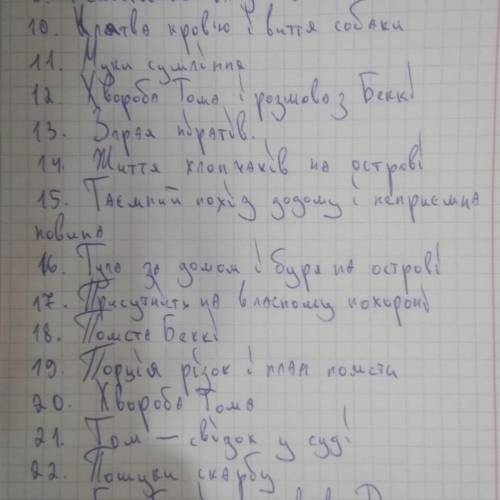 10. Клятва кров'ю і виття собаки
11. Муки сумління
12. Хвороба Тома і розмова з Беккі
13. Зграя піратів.
14. Життя хлопчаків на острові
15. Таємний похід додому і неприємна
новина
16. Туга за домом і буря на острові
17. Присутність на власному похороні
18. Помста Беккі
19. Порція різок і план помсти
20. Хвороба Тома
21. Том – свідок у суді
22. Пошуки скарбу